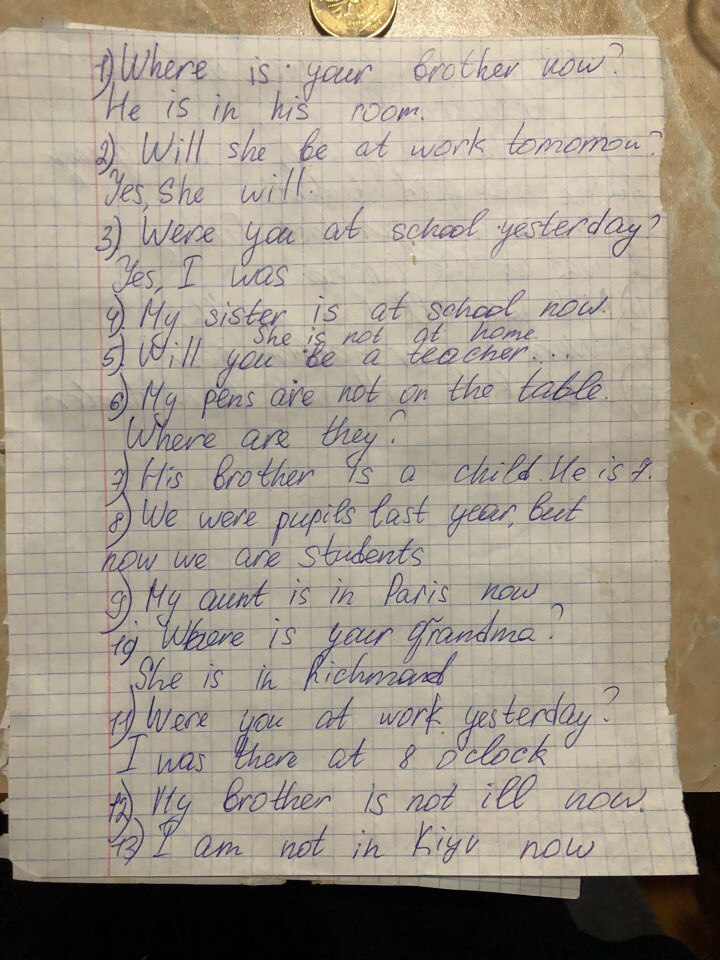 1) Where is your brother now?
He is in his room.
2) Will she be at work tomorrow?
Yes, She will.
3) Were you at school yesterday?
Yes, I was
4) My sister is at school now.
She is not at home
5) Will you be a teacher....
6) My pens are not on the table.
Where are they?
7) His brother is a child. He is 7.
8) We were pupils last year, but
now we are students
9) My aunt is in Paris now
10 Where is your grandma?
She is in Richmond
11) Were you at work yesterday?
I was there at 8 o'clock
12) My brother is not ill now.
13) I am not in Kiyv now